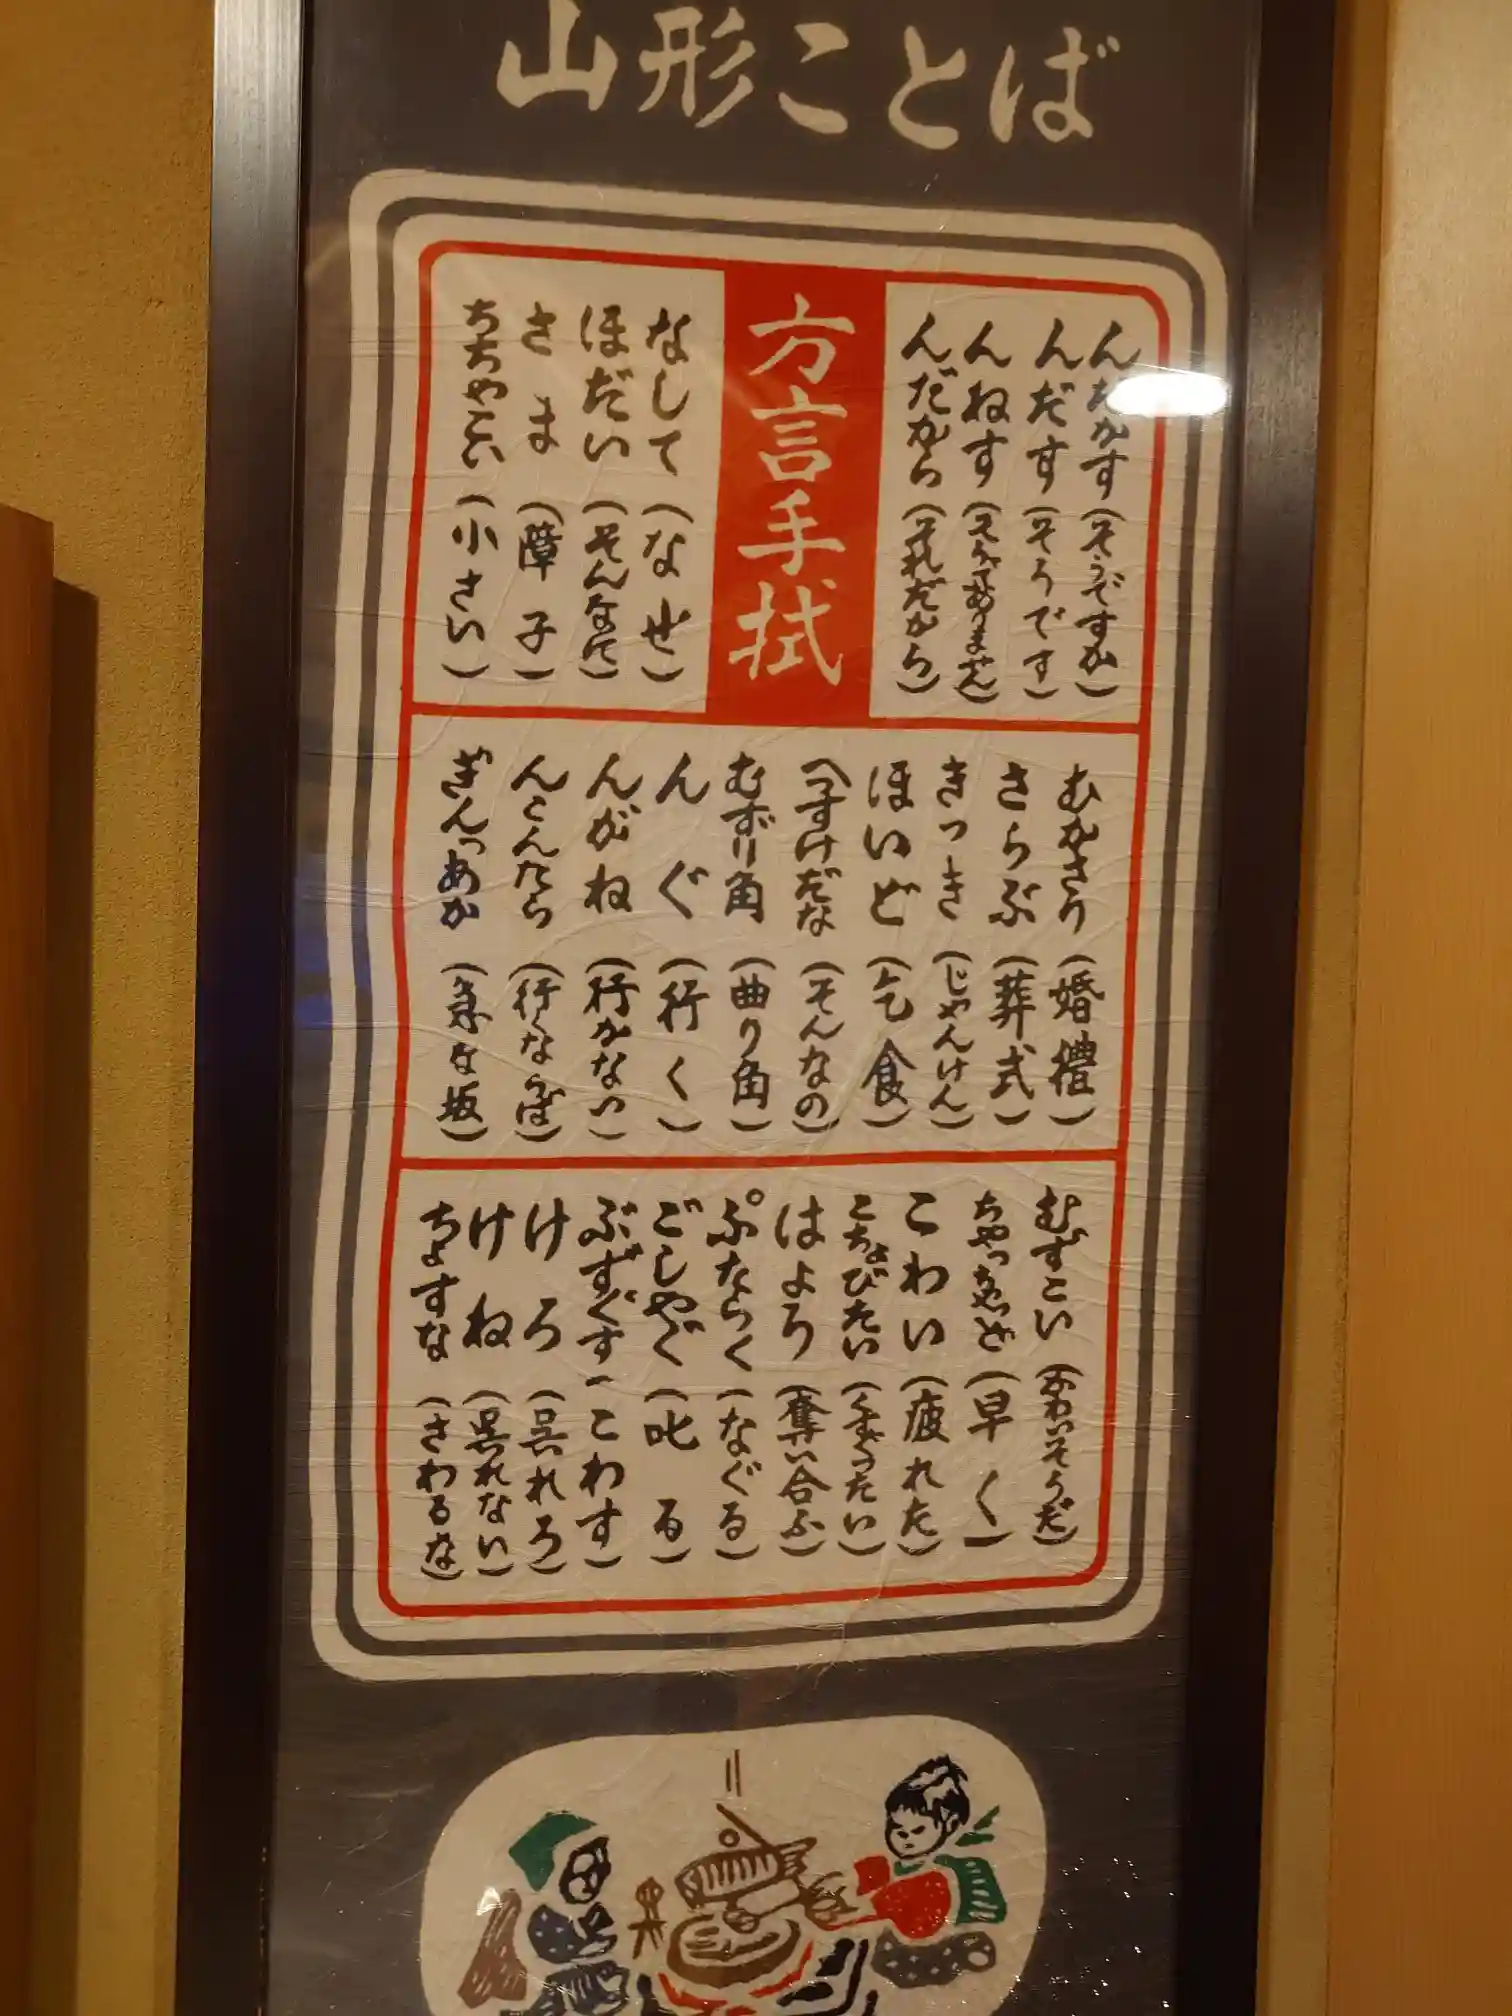 山形ことば
んだがす(そうですか)
んだす(そうです)
んねす(そうでありません)
んだから(それだから)
方言手拭
なして(なぜ)
ほだい(そんなに)
さま(障子)
ちちゃこい(小さい)
むかさり(婚禮)
さらぶ(葬式)
きっき(じゃんけん)
ほいど(乞食)
(そんなの)
むずり角(曲り角)
んぐ(行く)
んがね(行かない)
んこんたら(行くならば)
ぎんつあか(急な坂)
むずこい(かわいそうだ)
(早く)
こわい(疲れた)
こちょびたい(くすぐったい)
はよろ(奪い合ふ)
ぷたらく(なぐる)
ごしやぐ(叱る)
ぶずぐす(こわす)
けろ(呉れろ)
けね(呉れない)
ちょすな(さわるな)